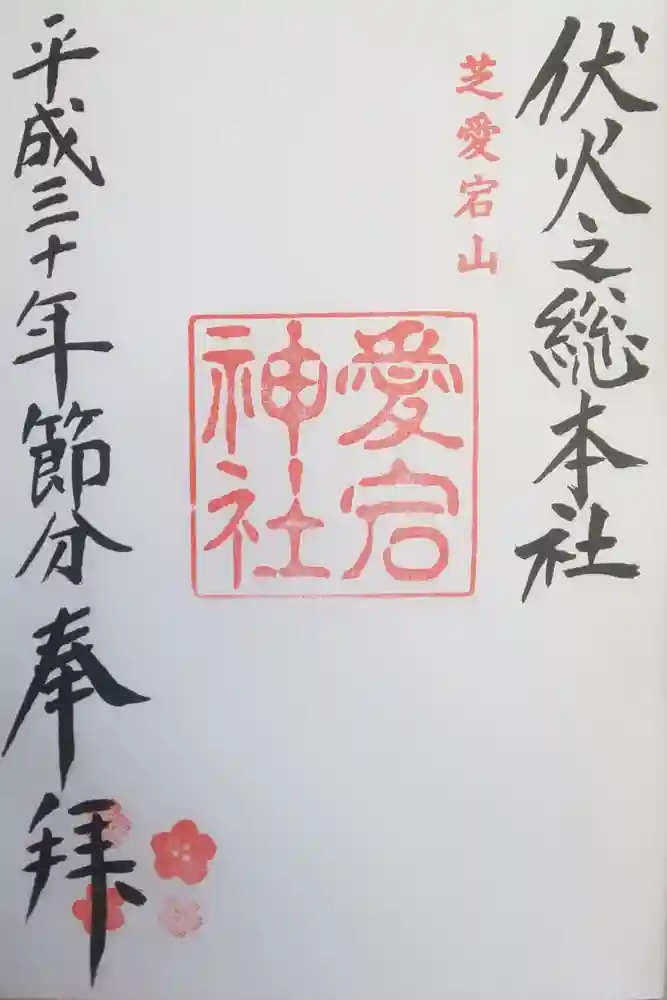 伏火之総本社
芝愛宕山
愛宕
神社
平成三十年節分 奉拝